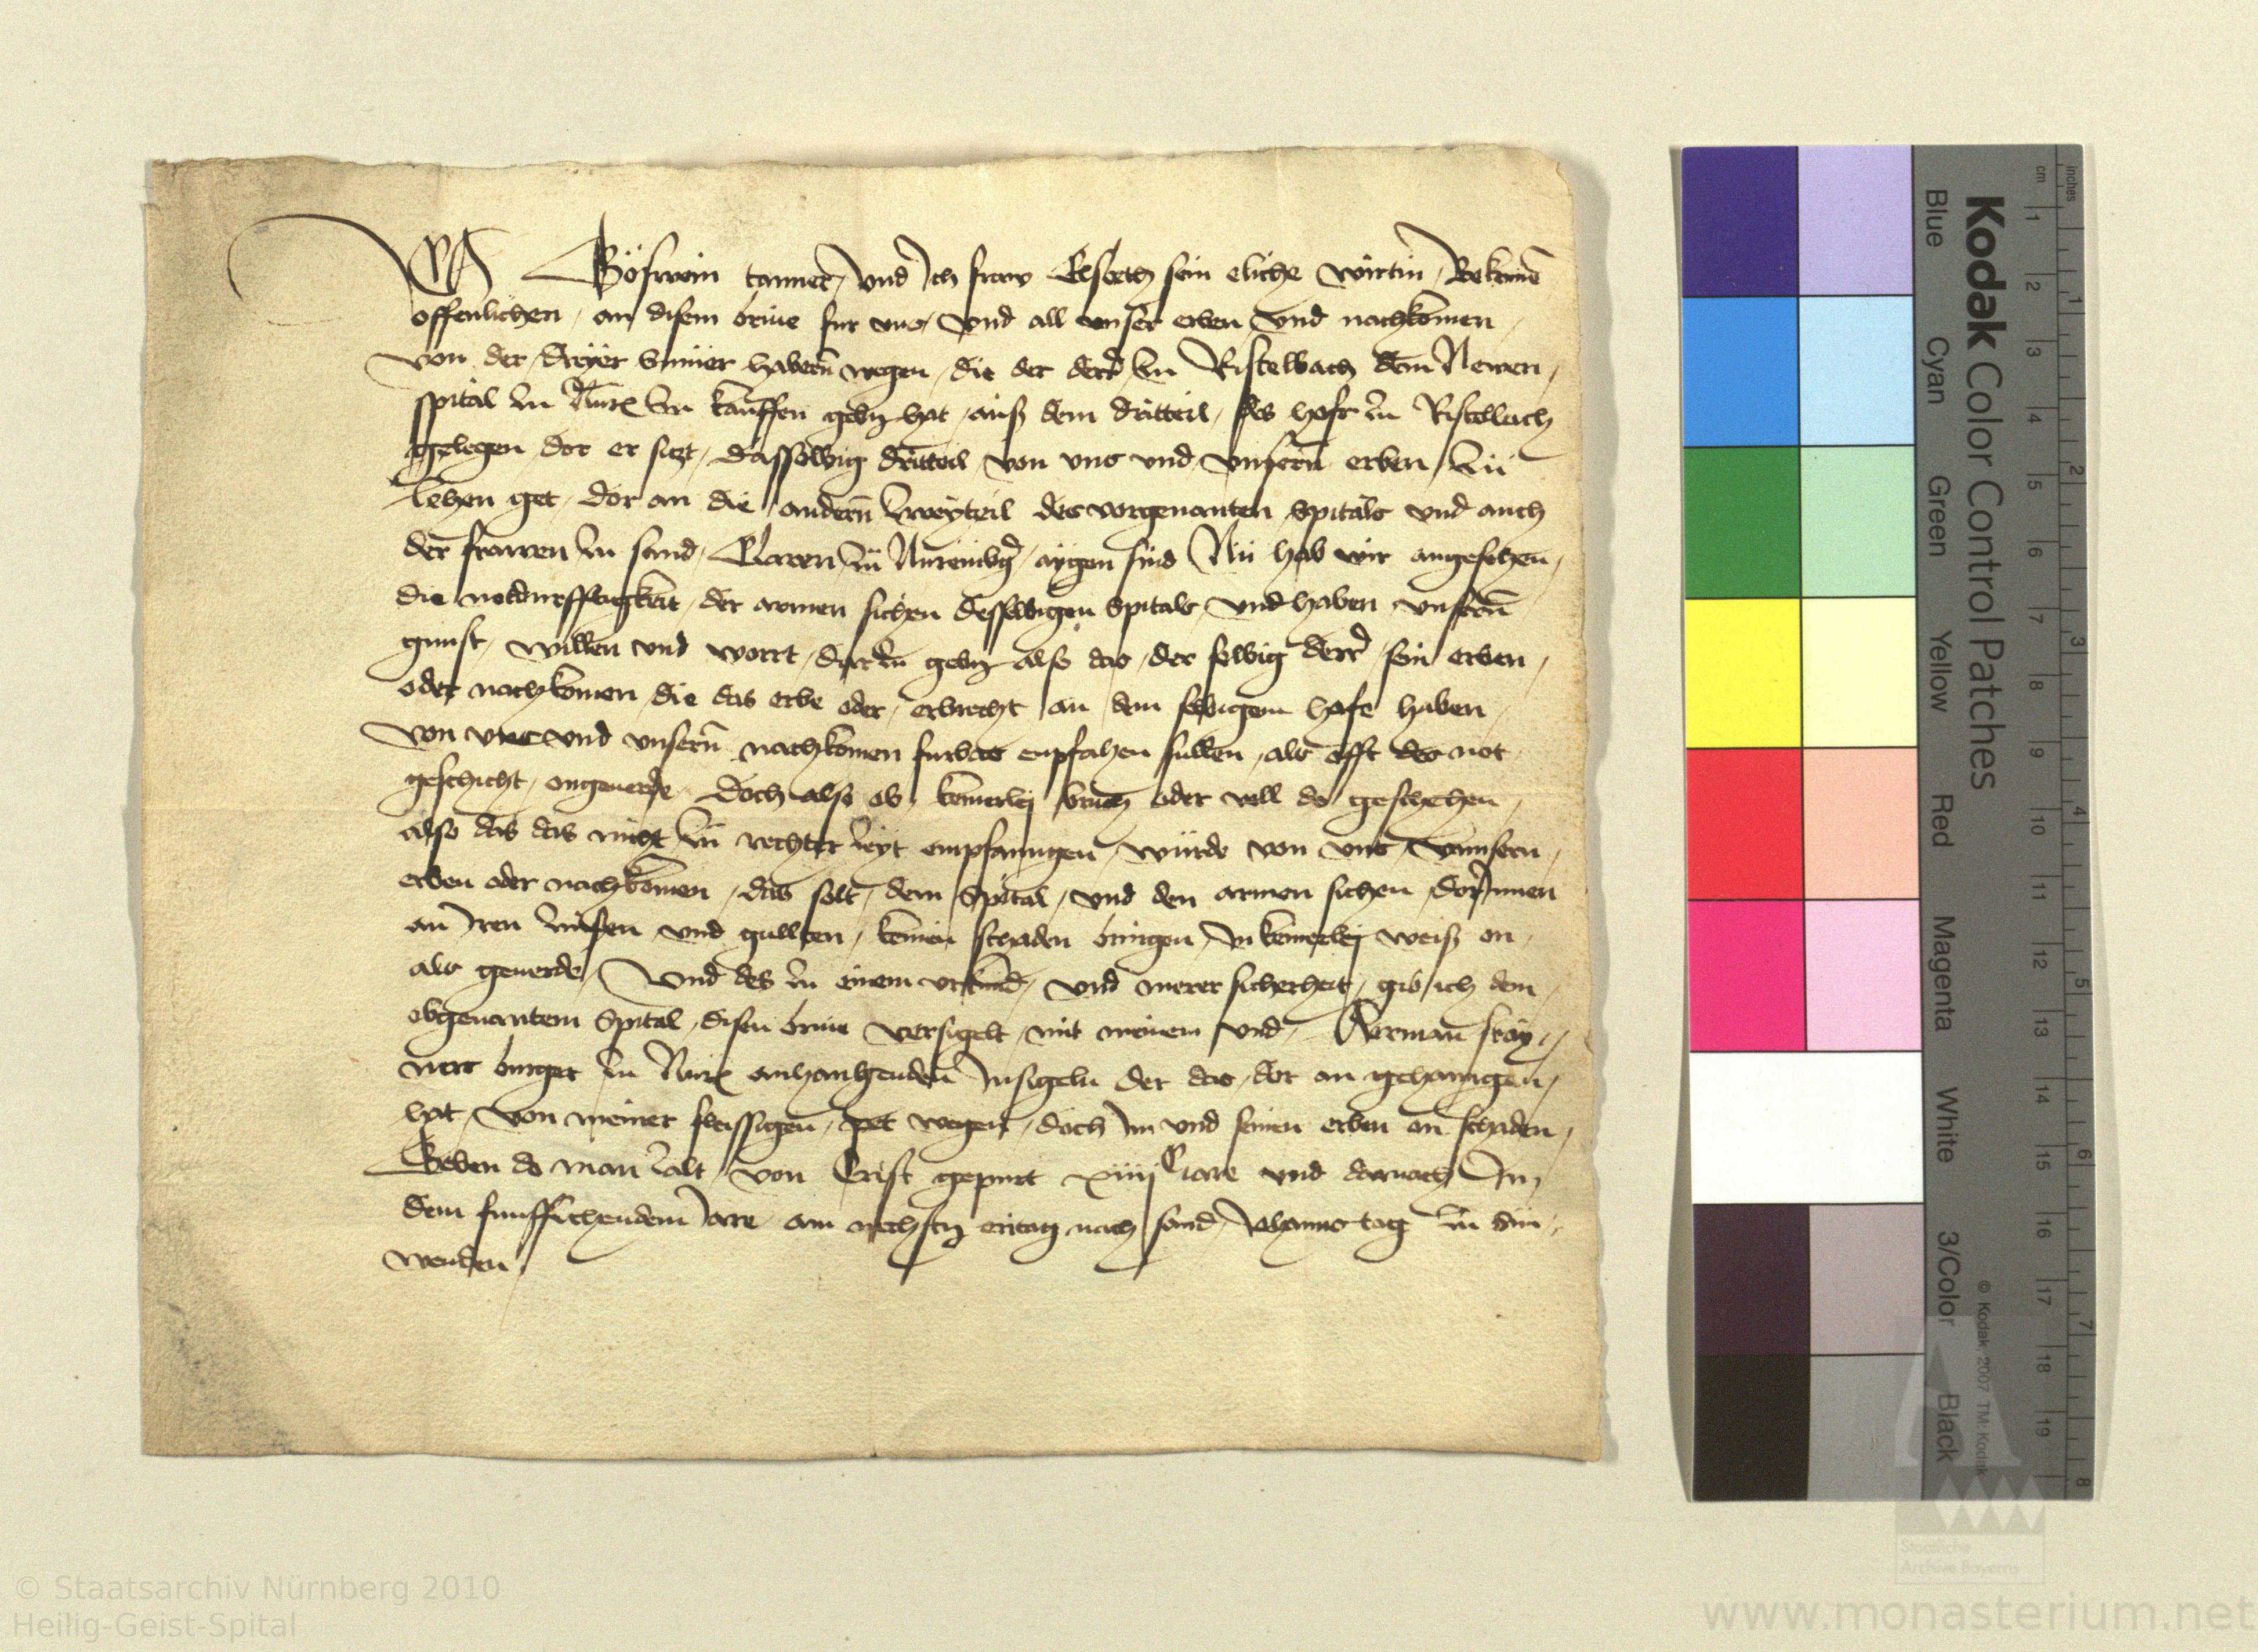 Ich Göswein tanner und Ich fraw Elspeth sein eliche wirtin Bekenne
offenlichen an disem briue fur uns und all unser erben und nachkomen
von der dreyer Sumer habern wegen die der derr zu Ristelbach dem Newen
spital zu Nurmberg zu kauffen geben hat auß dem dritteil des hofs zu Ristelbach
gelegen dor er sitzt dasselbig dritteil von uns und unsern erben zu
lehen get dor an die andern zweyteil des vorgenanten Spitals und auch
der frawen zu sand Claren zu Nuremberg aygen sind Nu hab wir angesehen
die notdurfftigkeit der armen sichen desselbigen Spitals und haben unsern
gunst willen und wortt darzu geben also das der selbig derr sein erben
oder nachkomen die das erbe oder erbrecht an dem selbigem hofe haben
von uns und unsern nachkomen furbas enpfahen sullen als offt des not
geschicht ongeuerde Doch also ob keinerley bruch oder vell do geschehen
also das das nicht zu rechter zeyt empfanngen würde von uns unnsern
erben oder nachkomen das solt dem Spital und den armen sichen dorInnen
an Iren zinsen und gullten keinen schaden bringen In keinerley weiß on
als geuerde Und des zu einem urkund und merer sicherheit gib ich dem
obgenantem Spital disen briue versigelt mit meinem und Herman
ners burger zu Nurmberg anhangenden Insigeln der das dor an gehanngen
hat von meiner fleissigen pet wegen doch im und seinen erben on schaden
Geben do man zalt von Crist gepurt xiiij C iare und darnach In
dem funffzehendem Iare am nechsten eritag nach sand Johanns tag zu sun
wenden
Kodak Color Control Patches
Blue Cyan Green Yellow Red Magenta White 3/Color Black
inches 1 2 3 4 5 6 7 8
cm 1 2 3 4 5 6 7 8 9 10 11 12 13 14 15 16 17 18 19
© Kodak, 2007 TM: Kodak
Staatliche
Archive Bayerns
© Staatsarchiv Nürnberg 2010
Heilig-Geist-Spital
www.monasterium.net